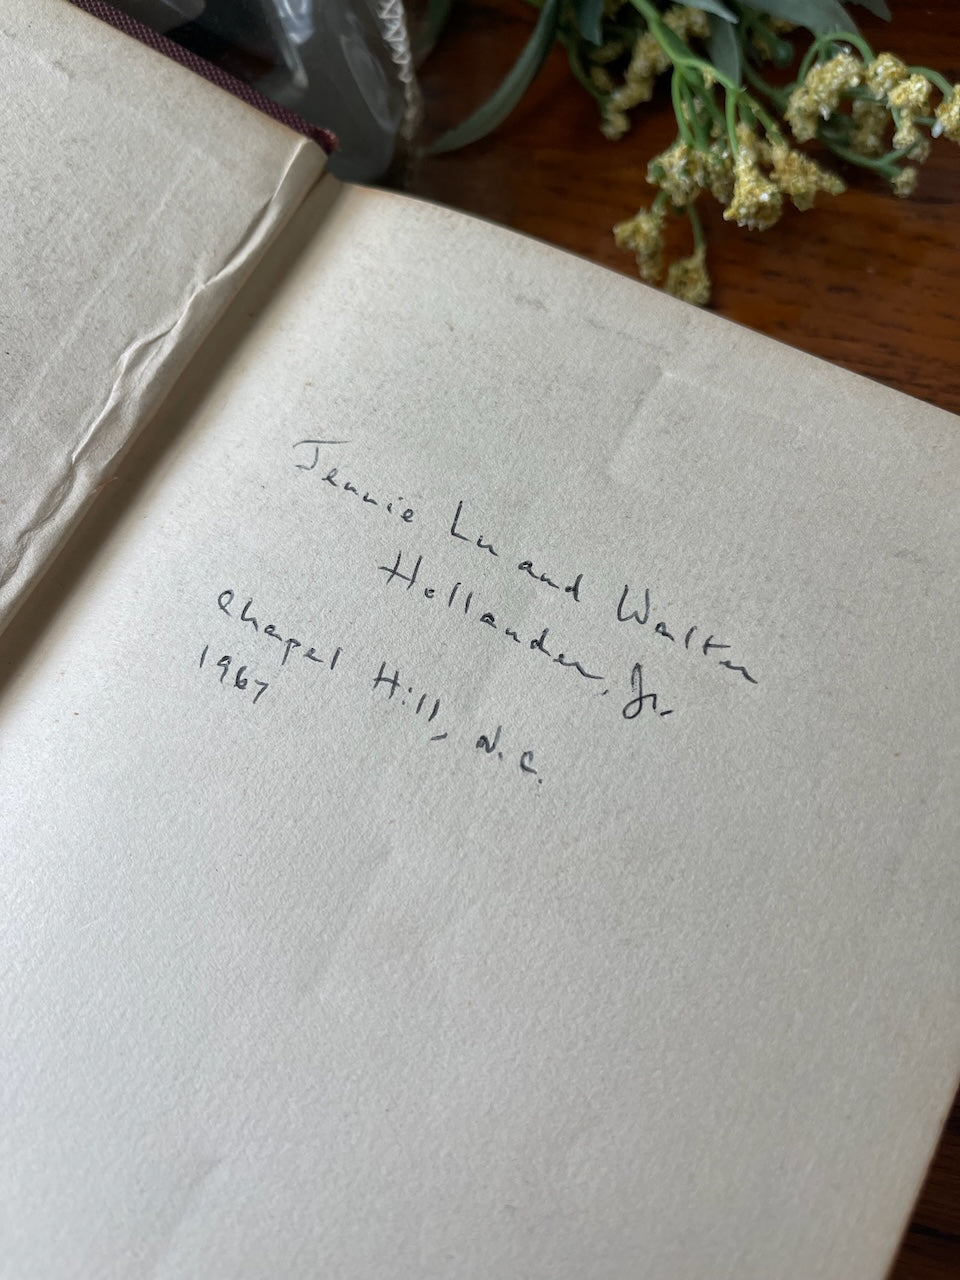 Jennie Lu and Walter
Hollander, Jr.
Chapel Hill, N.C.
1967